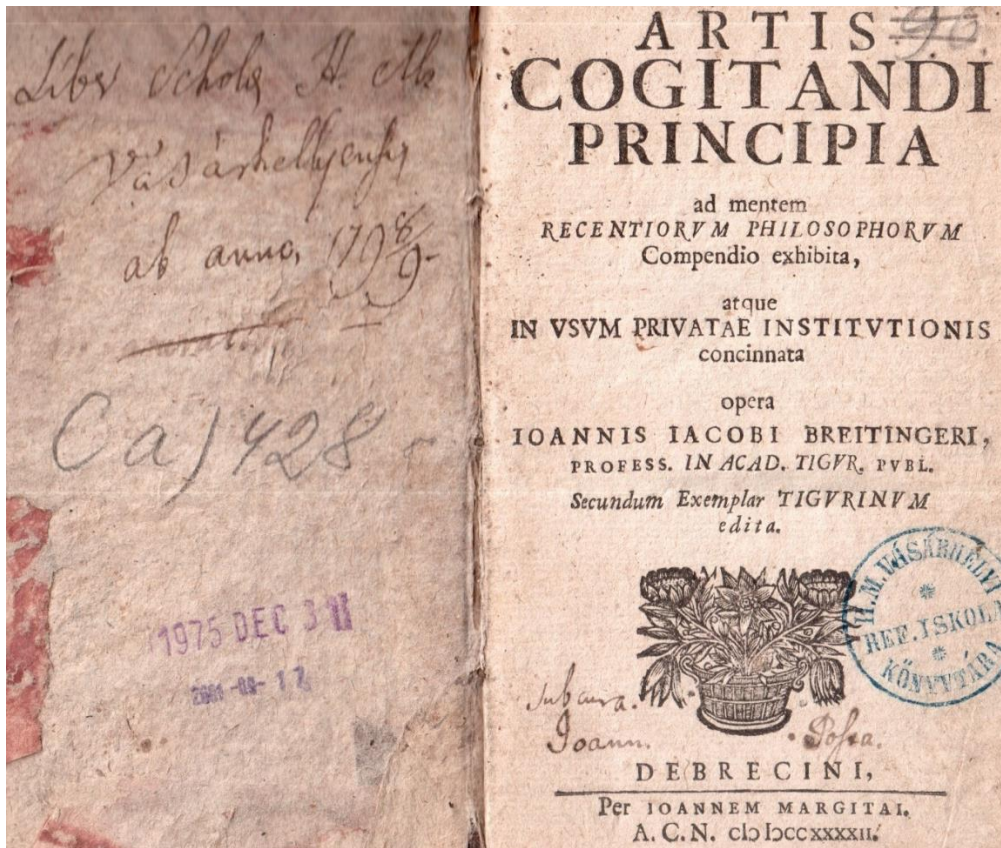 Liber Scholæ H. M.
Vásárhellyensis
ab anno, 1798/9.
Ca) 428
1975 DEC 31
2001 -09- 17
90
ARTIS
COGITANDI
PRINCIPIA
ad mentem
RECENTIORVM PHILOSOPHORVM
Compendio exhibita,
atque
IN VSVM PRIVATAE INSTITVTIONIS
concinnata
opera
IOANNIS IACOBI BREITINGERI,
PROFESS. IN ACAD. TIGVR. PVBL.
Secundum Exemplar TIGVRINVM
edita.
H.M.VÁSÁRHELYI
REF. ISKOLA
KÖNYVTÁRA
sub cura.
Joann. Posfa.
DEBRECINI,
Per IOANNEM MARGITAI.
A. C. N. cIↃ IↃcc xxxxII.